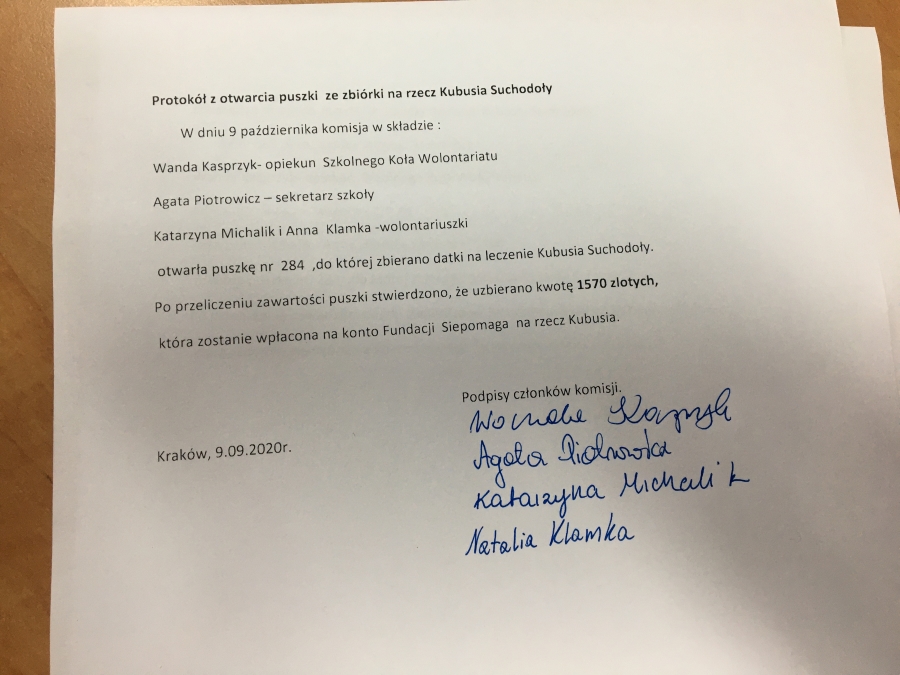 Protokół z otwarcia puszki ze zbiórki na rzecz Kubusia Suchodoły
W dniu 9 października komisja w składzie :
Wanda Kasprzyk- opiekun Szkolnego Koła Wolontariatu
Agata Piotrowicz – sekretarz szkoły
Katarzyna Michalik i Anna Klamka -wolontariuszki
otwarła puszkę nr 284 ,do której zbierano datki na leczenie Kubusia Suchodoły.
Po przeliczeniu zawartości puszki stwierdzono, że uzbierano kwotę 1570 zlotych,
która zostanie wpłacona na konto Fundacji Siepomaga na rzecz Kubusia.
Podpisy członków komisji.
Kraków, 9.09.2020r.
Agata
Katarzyna Michalik
Natalia Klamka